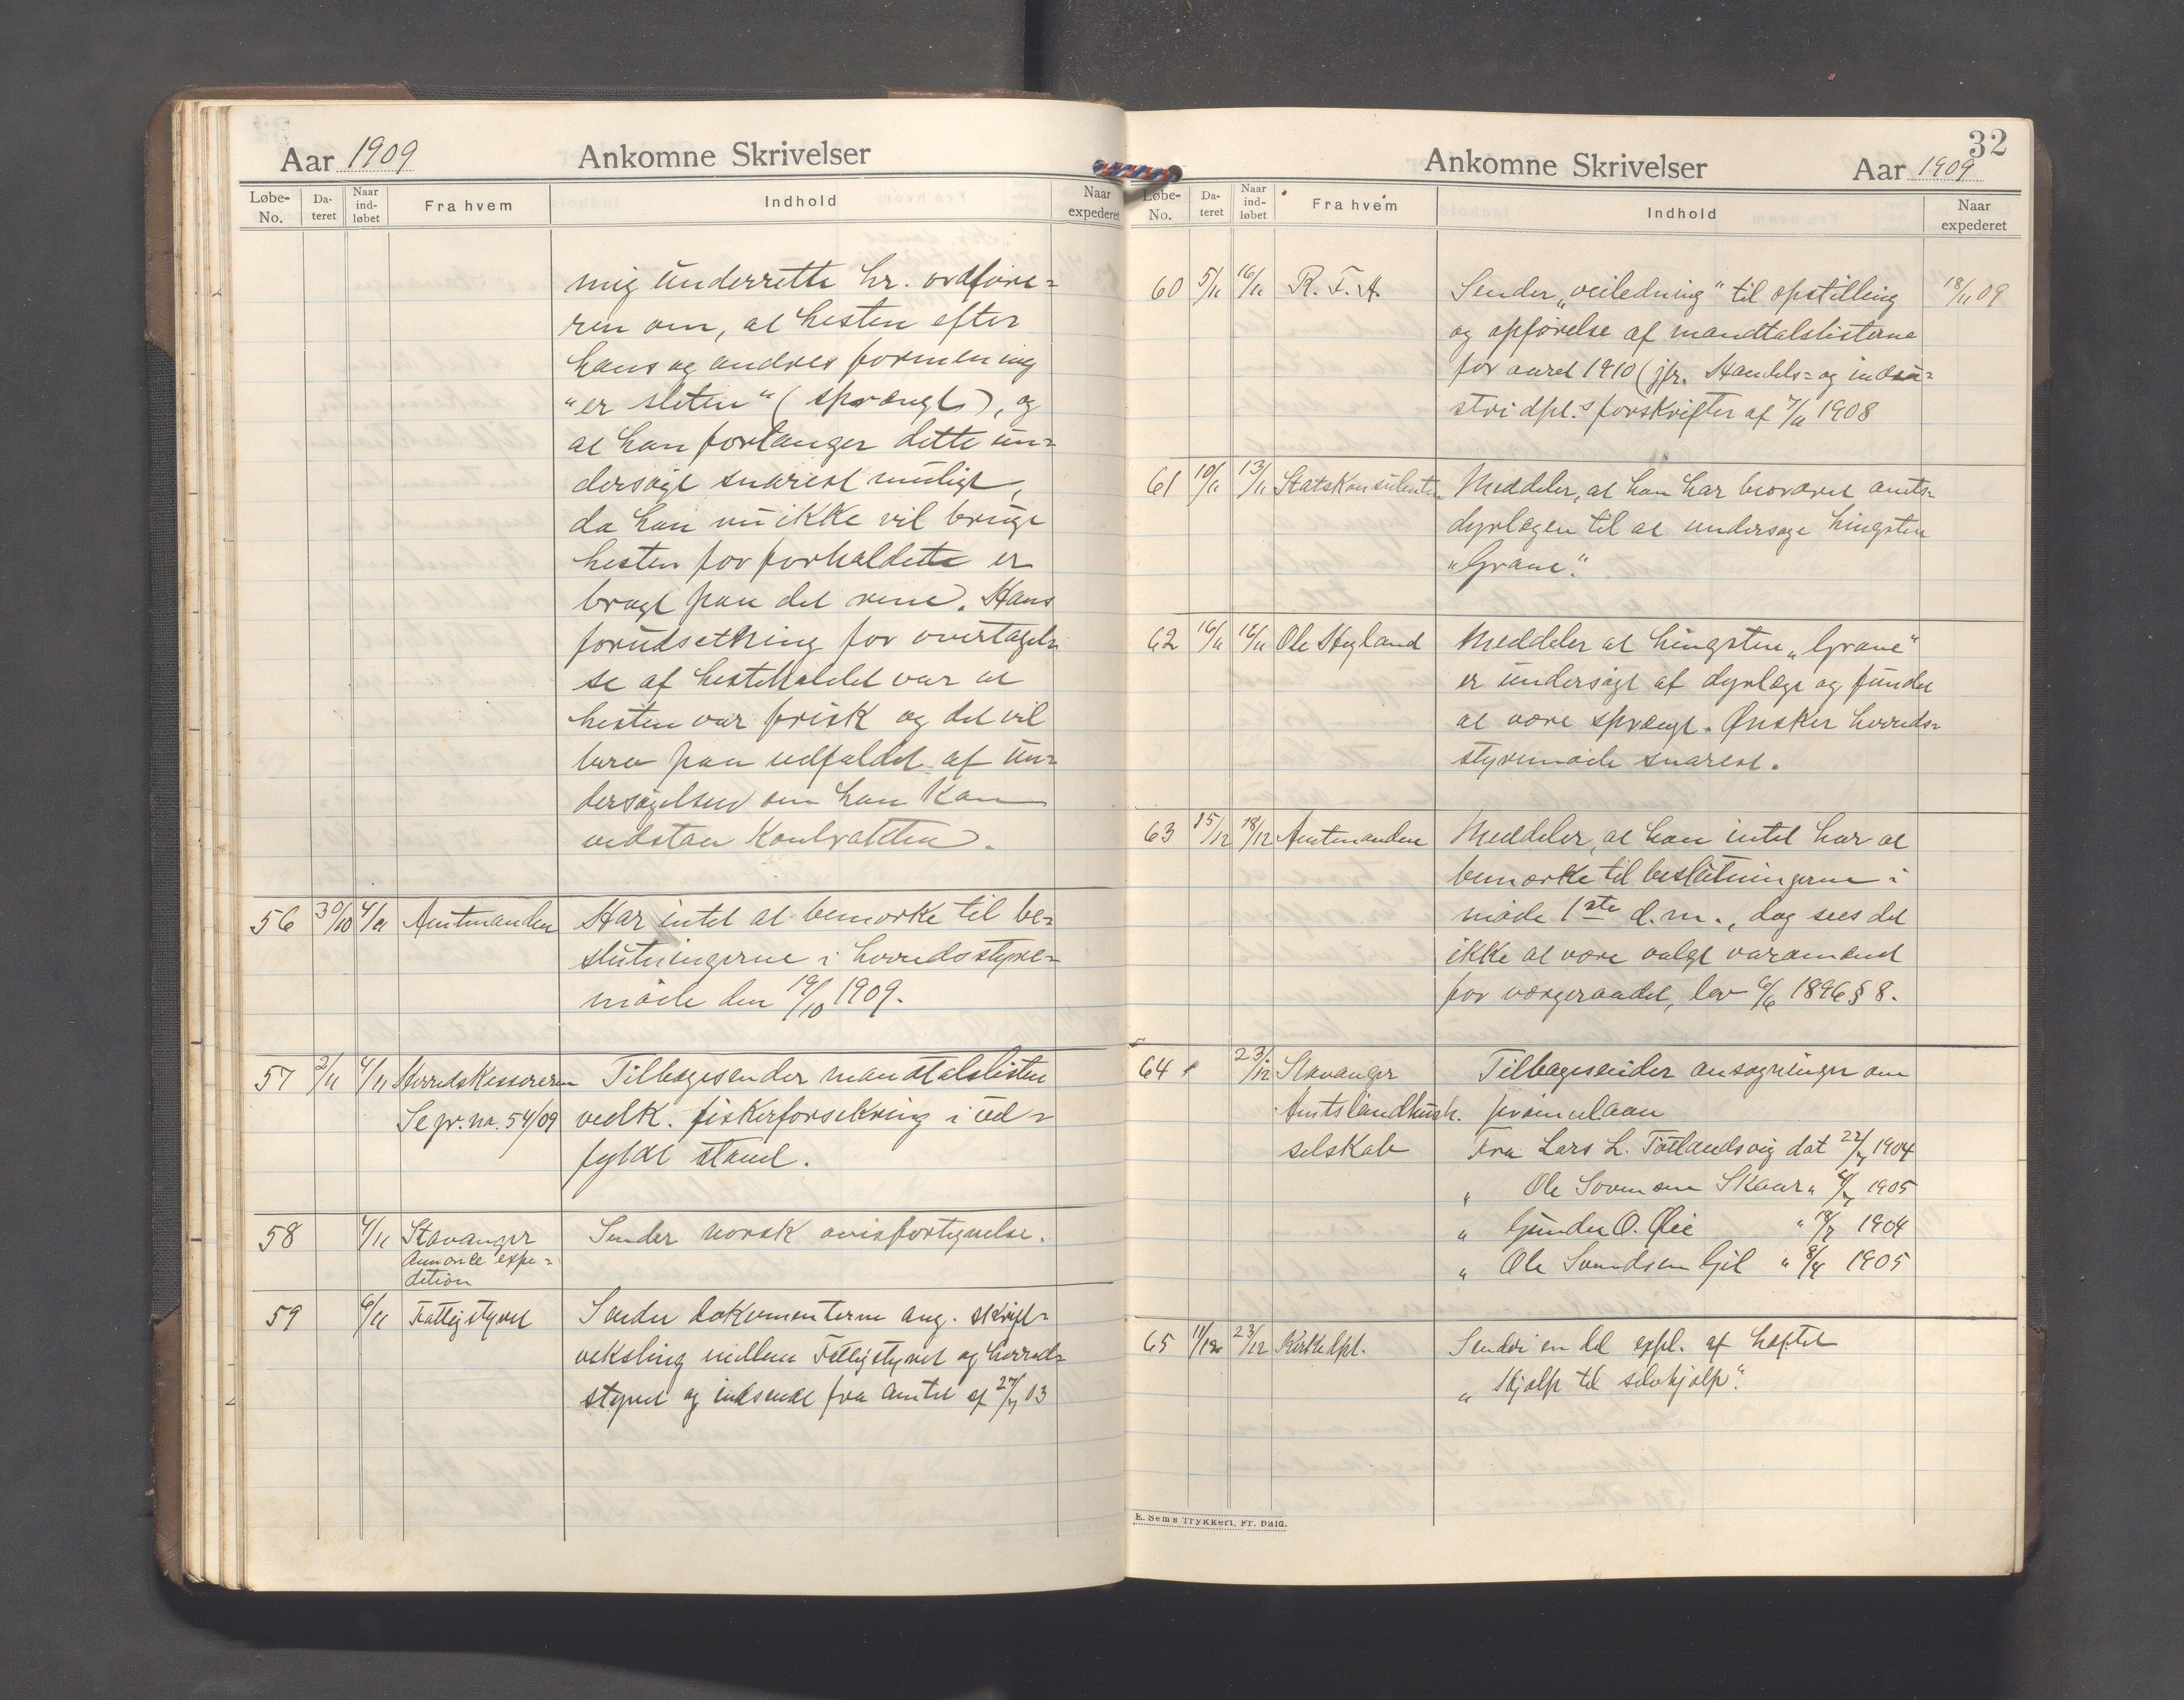 Aar 1909 Ankomne Skrivelser
Løbe-No. Da-teret Naar ind-løbet Fra hvem Indhold Naar expederet
mig underrette hr. ordføre=
ren om, at hesten efter
hans og andres formening
"er sleten" (sprængt), og
at han forlanger dette un=
dersøgt snarest muligt,
da han nu ikke vil bruge
hesten før forholdet er
bragt paa det rene. Hans
forudsetning for overtagel=
se af hesteholdet var at
hesten var frisk og det vil
bero paa udfaldet af un=
dersøgelsen om han kan
vedstaa kontrakten.
56 30/10 4/11 Amtmanden Har intet at bemerke til be=
slutningerne i herredsstyre=
møde den 19/10 1909.
57 2/11 4/11 Herredskassereren Tilbagesender mandtalslisten
Se jr. no. 54/09 vedk. fiskerforsikring i ud=
fyldt stand.
58 4/11 Stavanger Sender norsk avisfortegnelse.
Annonce expe=
dition
59 6/11 Fattigstyret Sender dokumenterne ang. skrift=
veksling mellem Fattigstyret og herreds=
styret og indsendt fra Amtet af 27/7 03
32
Ankomne Skrivelser Aar 1909
Løbe-No. Da-teret Naar ind-løbet Fra hvem Indhold Naar expederet
60 5/11 16/11 R. F. A. Sender "veiledning" til opstilling 18/11 09
og opførelse af mandtalslisterne
for aaret 1910 (jfr. Handels= og indu=
stridpt.s forskrifter af 7/11 1908
61 10/11 13/11 Statskonsulenten Meddeler, at han har beordret amts=
dyrlægen til at undersøge hingsten
"Grane".
62 16/11 18/11 Ole Høyland Meddeler at hingsten "Grane"
er undersøgt af dyrlæge og fundet
at være sprængt. Ønsker herreds=
styremøde snarest.
63 15/12 18/12 Amtmanden Meddeler, at han intet har at
bemerke til beslutningerne i
møde 1ste d.m., dog sees det
ikke at være valgt varamænd
for værgeraadet, lov 6/6 1896 § 8.
64 23/12 Stavanger Tilbagesender ansøgninger om
Amts landhush. præmielaan
selskab Fra Lars L. Tøtlandsvig dat 22/7 1904
" Ole Sørensen Skaar " 1905
" Gunder O. Øie " 1904
" Ole Svendsen Gil " 8/4 1905
65 11/12 23/12 Kirkedpt. Sender en del expl. af heftet
"Hjælp til selvhjælp".
E. Sem's Trykkeri, Fr. hald.